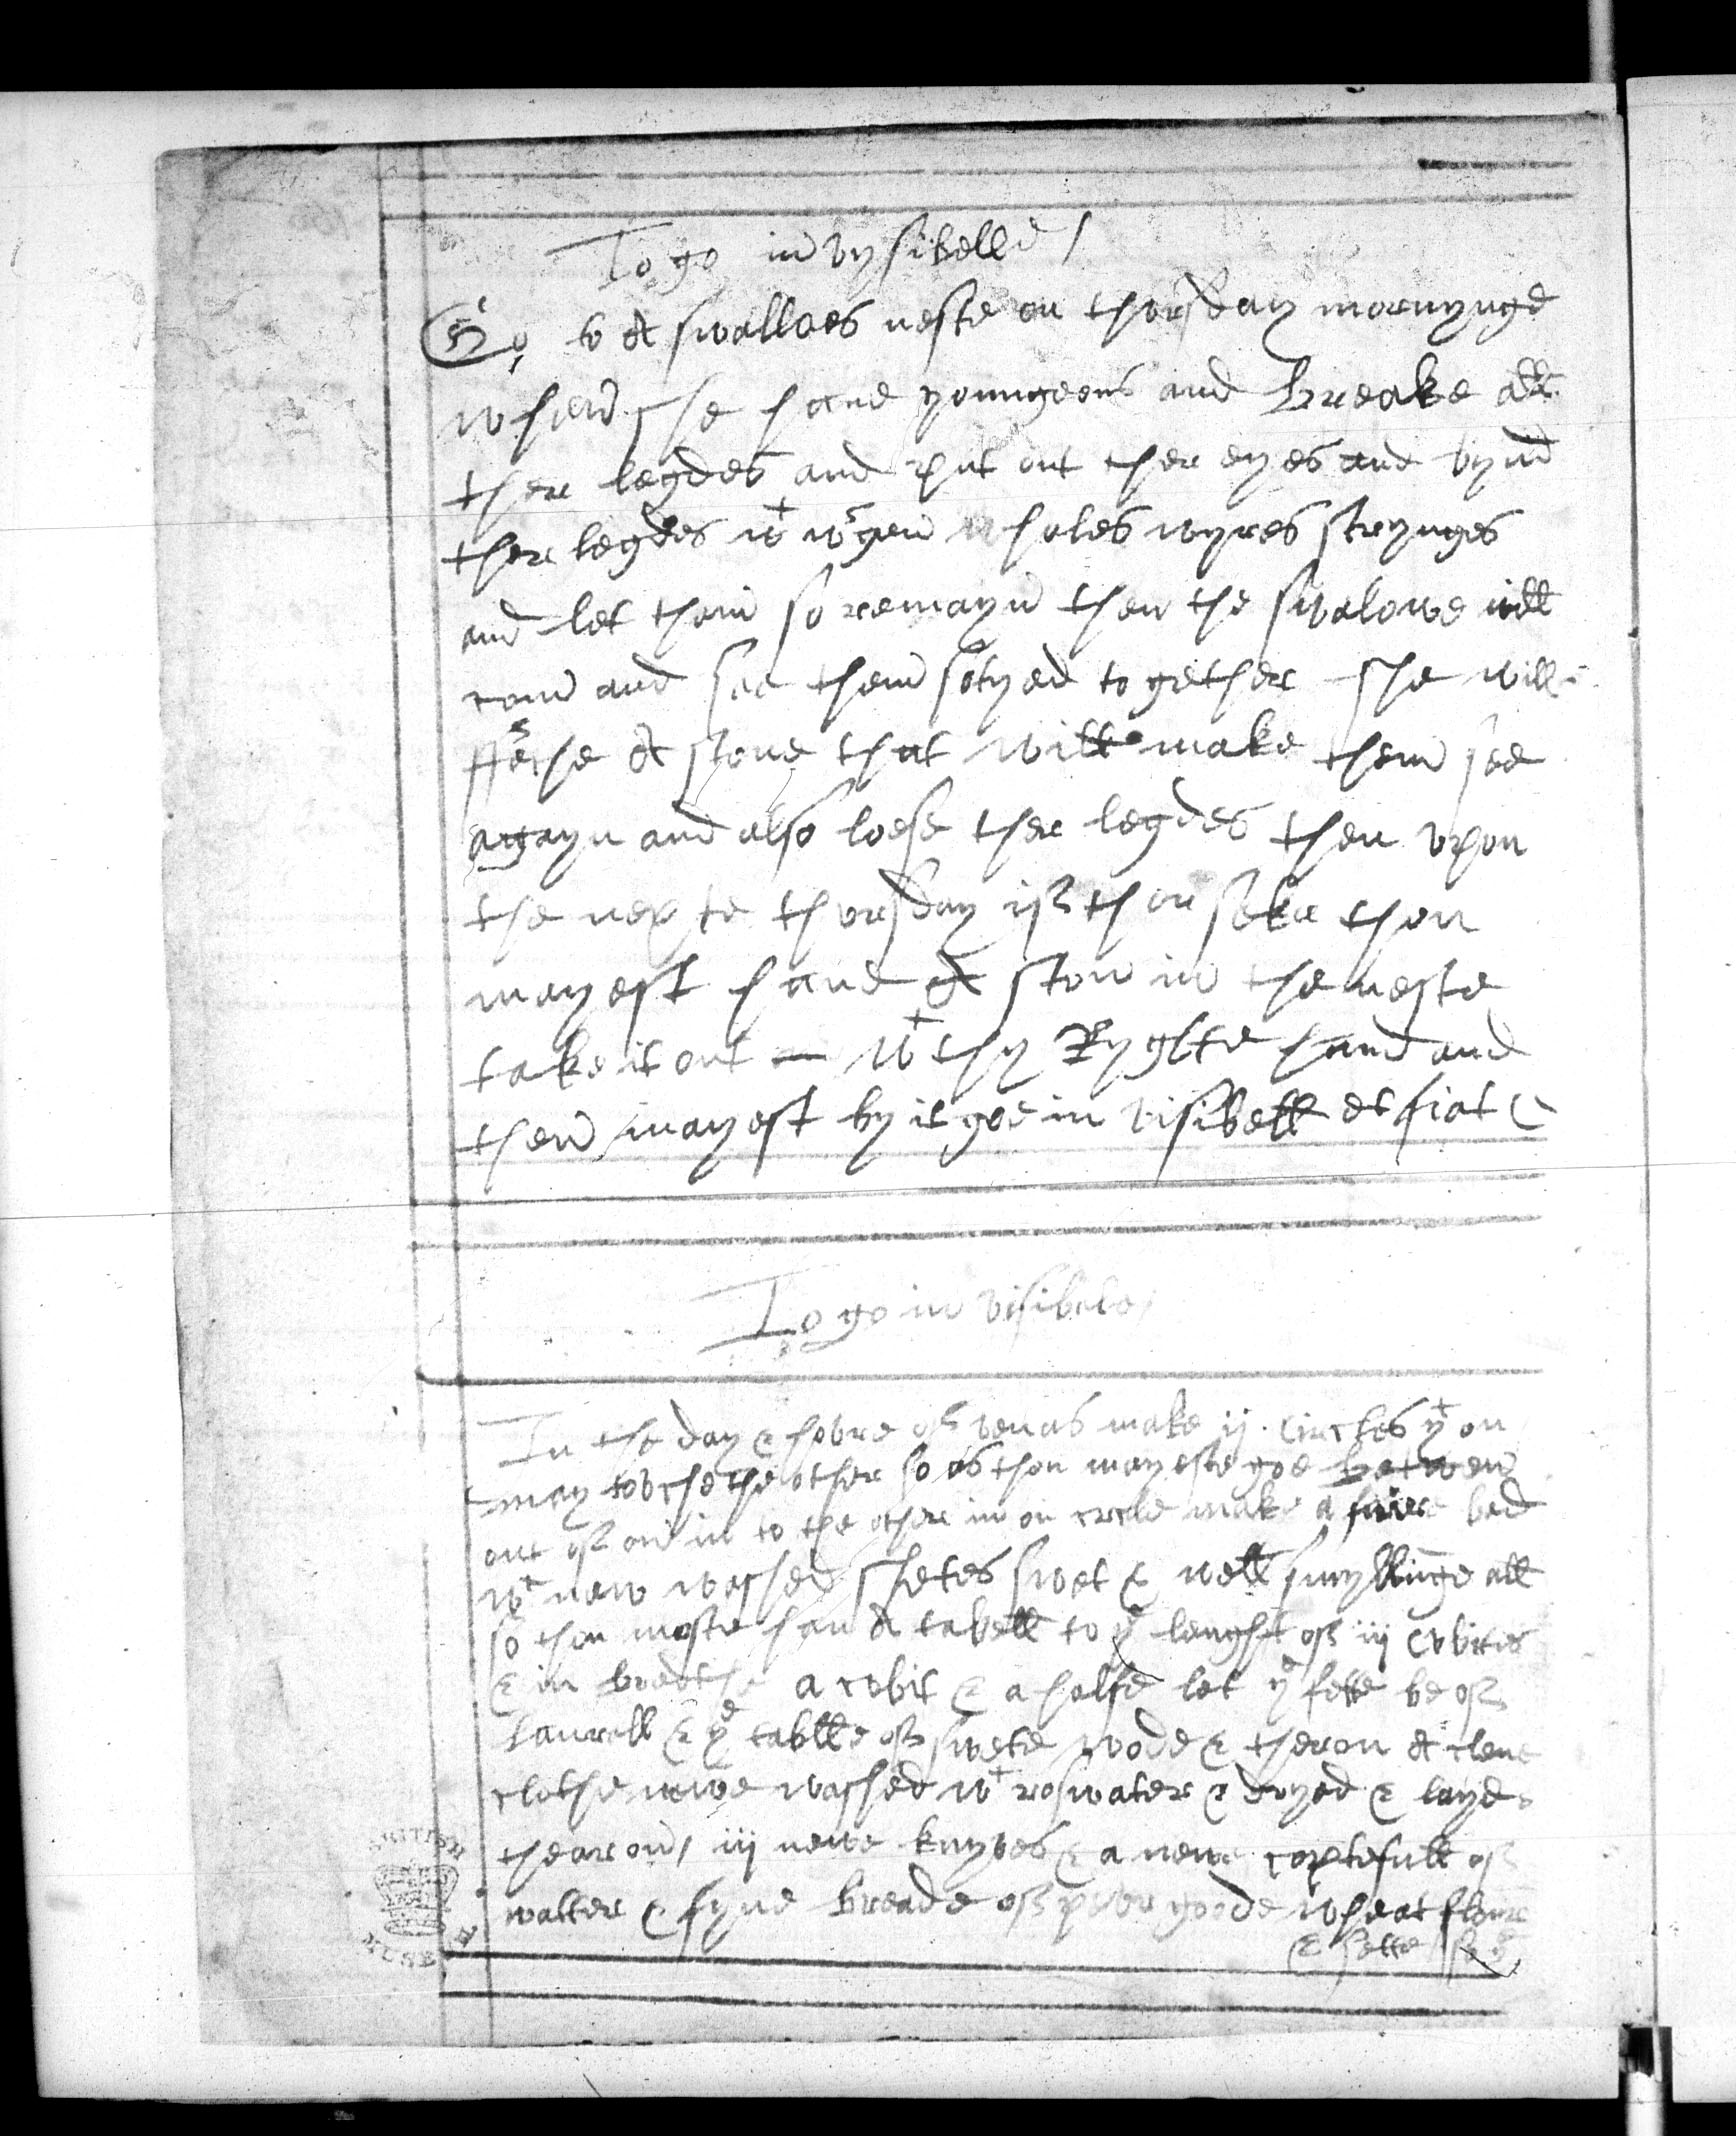 To go in vysibelle /
Go to A swalloes neste on thorsday mornynge
when she haue youngeons and Breake all
ther legdes and put out ther eyes and bynd
ther legdes wt holes wyres strynges
and let them so remayn then the swalowe will
com and see them so tyed to gether she will
fetche A stone that will make them see
agayn and also lose ther legdes then vpon
the nexte thorsday if thou seke thou
mayest haue A ston in the neste
take it out wt thy Ryghte hand and
then mayest by it goe in visibell et fiat
To go in visibele
In the day & houre of venus make ij. Circkles yt on
may totche the other so as thou mayeste goe betwen
out of on in to the other in on circle make a faire bed
wt new washed shetes swet & well smyllinge all
so thou moste hau A tabell to ye lenght of iij Cvbites
& in bredthe a cvbit & a halfe let ye fette be of
Laurell & ye tablle of swete wode & theron A clene
clothe newe washed wt roswater & dryed & layde
thearon / iij newe knyves & a newe copefull of
watter & fyne breade of puer goode wheat floure
& sette
BRITISH MUSEUM